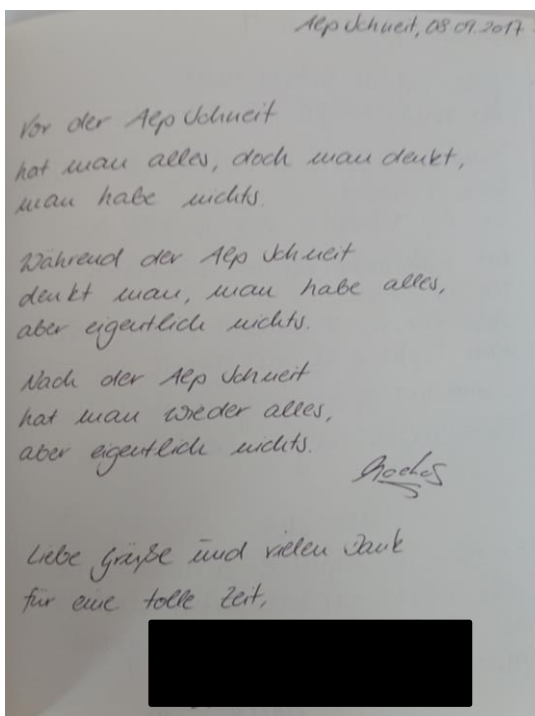 Alp Schneit, 08.09.2017
Vor der Alp Schneit
hat man alles, doch man denkt,
man habe nichts.
Während der Alp Schneit
denkt man, man habe alles,
aber eigentlich nichts.
Nach der Alp Schneit
hat man wieder alles,
aber eigentlich nichts.
Liebe Grüße und vielen Dank
für eine tolle Zeit,